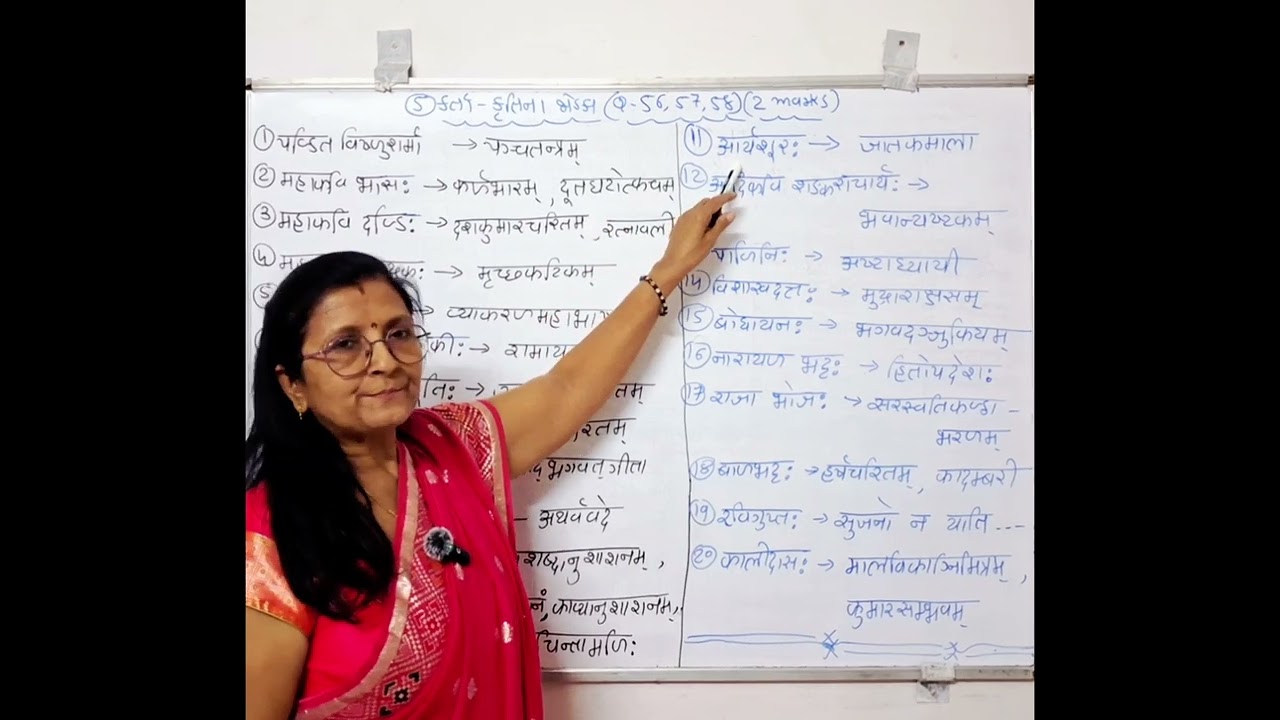 ⑤ કર્તા - કૃતિના જોડકા (Q-56, 57, 58) (2 marks)
① पण्डित विष्णुशर्मा → पञ्चतन्त्रम्
② महाकवि भासः → कर्णभारम्, दूतघटोत्कचम्
③ महाकवि दण्डिः → दशकुमारचरितम्, रत्नावली
④ कः → मृच्छकटिकम्
⑤ → व्याकरणमहाभा
की: → रामाय
तिः → तम्
रतम्
द् भगवत् गीता
- अथर्ववेदे
शब्दानुशाशनम्,
नं, काव्यानुशाशनम्,
चिन्तामणिः
⑪ आर्यशूरः → जातकमाला
⑫ आदिकवि शङकराचार्यः →
भवान्यष्टकम्
पाणिनिः → अष्टाध्यायी
⑭ विशाखदत्तः → मुद्राराक्षसम्
⑮ बोधायनः → भगवदज्जुकियम्
⑯ नारायण भट्टः → हितोपदेशः
⑰ राजा भोजः → सरस्वतिकण्ठा -
भरणम्
⑱ बाणभट्टः → हर्षचरितम्, कादम्बरी
⑲ रविगुप्तः → सुजनो न याति ...-
⑳ कालीदासः → मालविकाग्निमित्रम्,
कुमारसम्भवम्